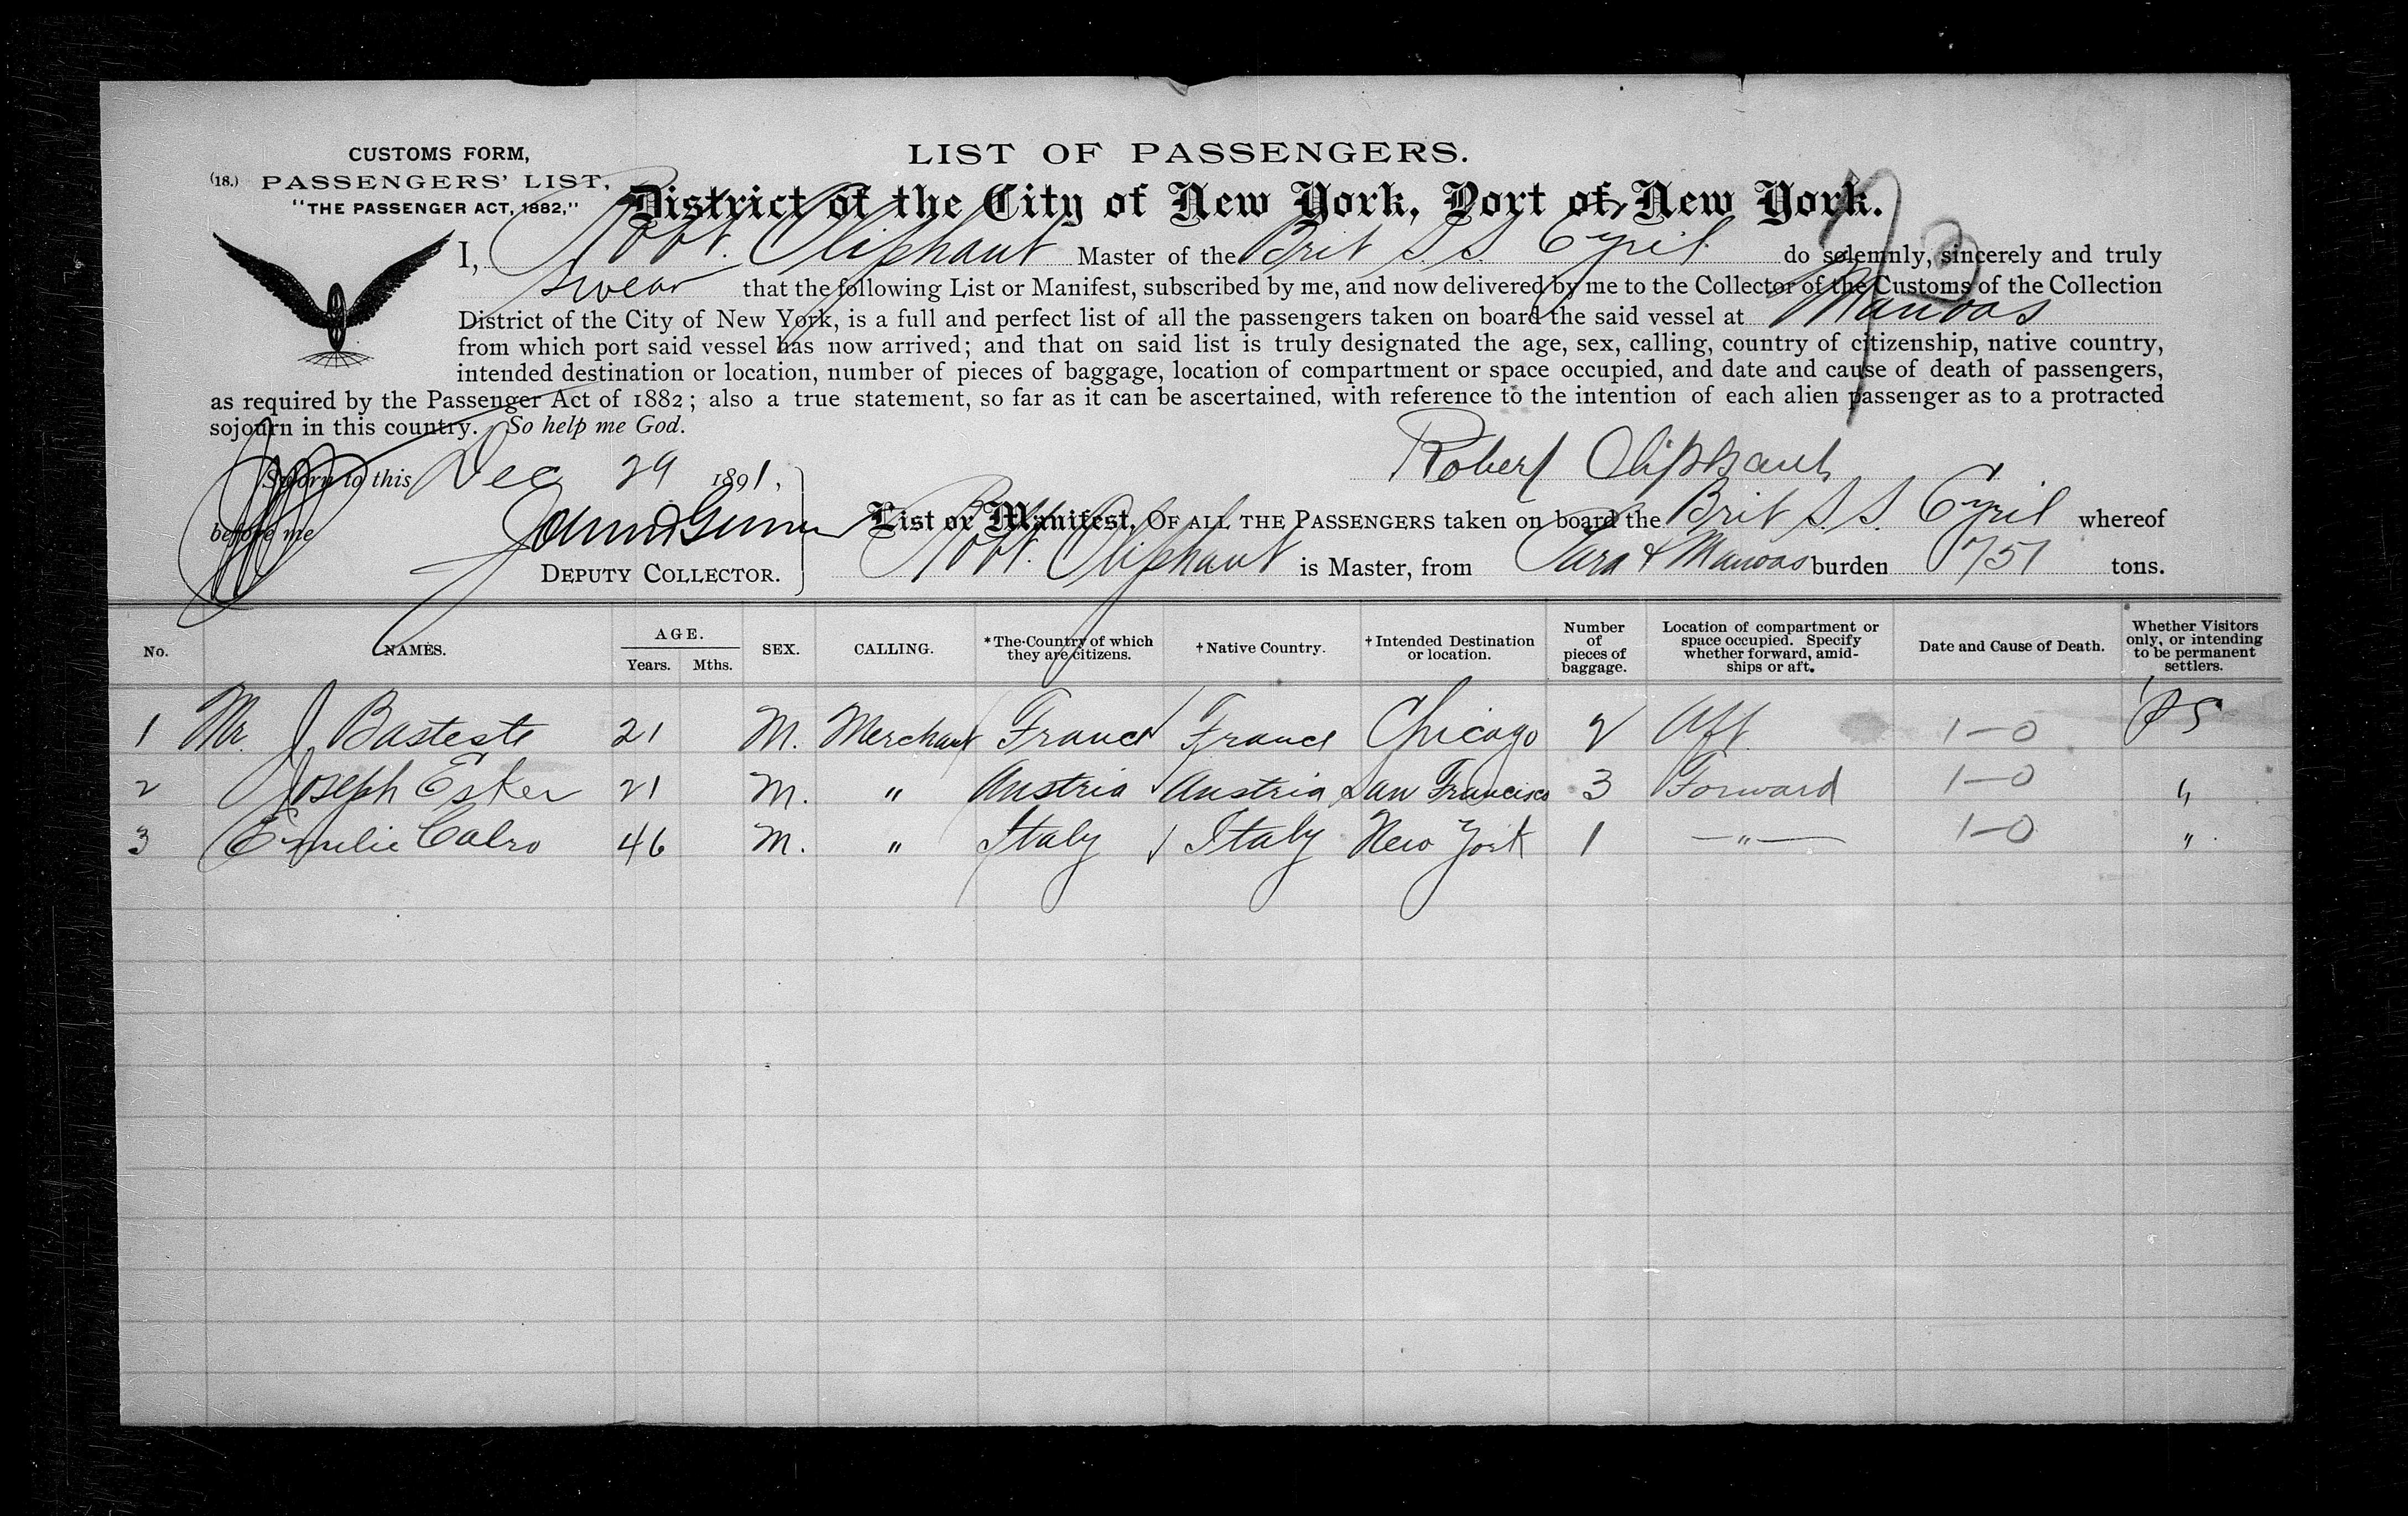 CUSTOMS FORM,
(18.) PASSENGERS' LIST,
"THE PASSENGER ACT, 1882,"
LIST OF PASSENGERS.
District of the City of New York, Port of New York.
I, Robt. Oliphant Master of the Brit S.S. Cyril do solemnly, sincerely and truly
swear that the following List or Manifest, subscribed by me, and now delivered by me to the Collector of the Customs of the Collection
District of the City of New York, is a full and perfect list of all the passengers taken on board the said vessel at Manoas
from which port said vessel has now arrived; and that on said list is truly designated the age, sex, calling, country of citizenship, native country,
intended destination or location, number of pieces of baggage, location of compartment or space occupied, and date and cause of death of passengers,
as required by the Passenger Act of 1882; also a true statement, so far as it can be ascertained, with reference to the intention of each alien passenger as to a protracted
sojourn in this country. So help me God.
Sworn to this Dec 29 1891,
Robert Oliphant
before me
DEPUTY COLLECTOR.
List or Manifest, OF ALL THE PASSENGERS taken on board the Brit S.S. Cyril whereof
Robt. Oliphant is Master, from Para & Manoas burden 751 tons.
No. NAMES. AGE. Years. Mths. SEX. CALLING. *The Country of which they are citizens. †Native Country. †Intended Destination or location. Number of pieces of baggage. Location of compartment or space occupied. Specify whether forward, amidships or aft. Date and Cause of Death. Whether Visitors only, or intending to be permanent settlers.
1 Mr. J Basteste 21 M. Merchant France France Chicago 2 Aft 1-0 PS
2 Joseph Esker 21 M. " Austria Austria San Francisco 3 Forward 1-0 "
3 Emilie Calro 46 M. " Italy Italy New York 1 —"— 1-0 "